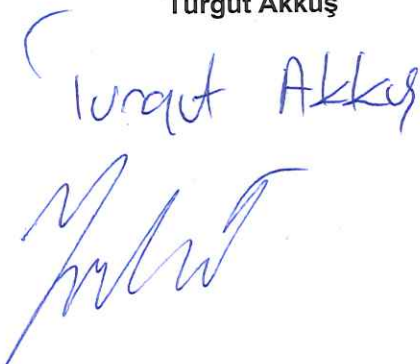 Turgut Akkuş
Turgut Akkuş